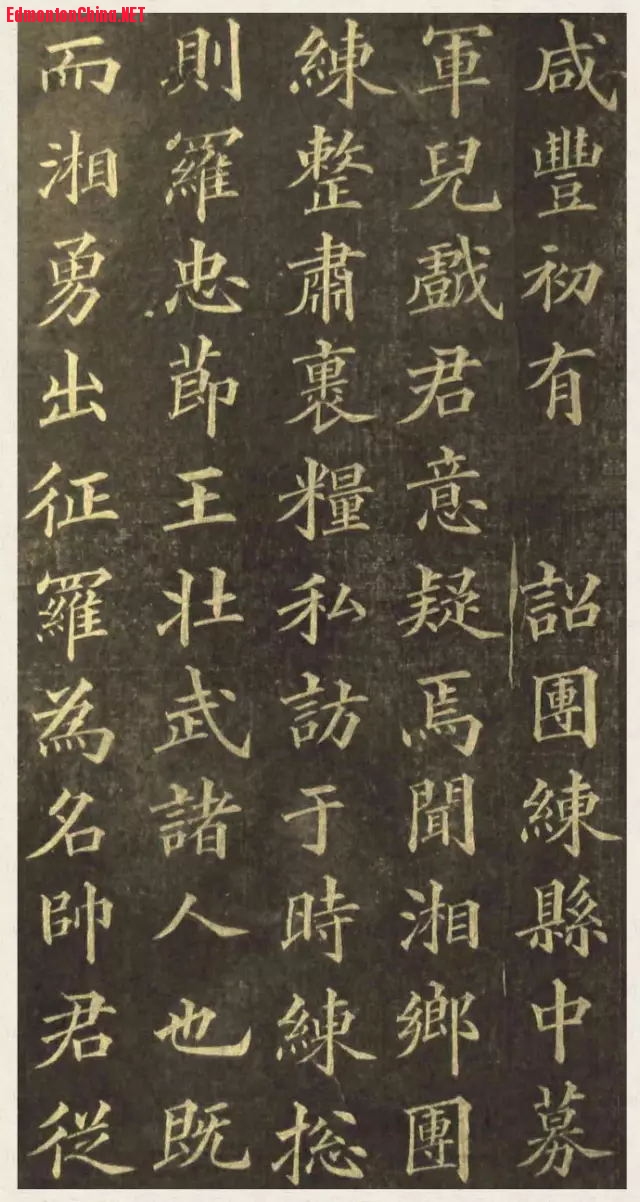 EdmontonChina.NET
咸豐初有 詔團練縣中募
軍兒戲君意疑焉聞湘鄉團
練整肅裹糧私訪于時練捴
則羅忠節王壯武諸人也既
而湘勇出征羅為名帥君從